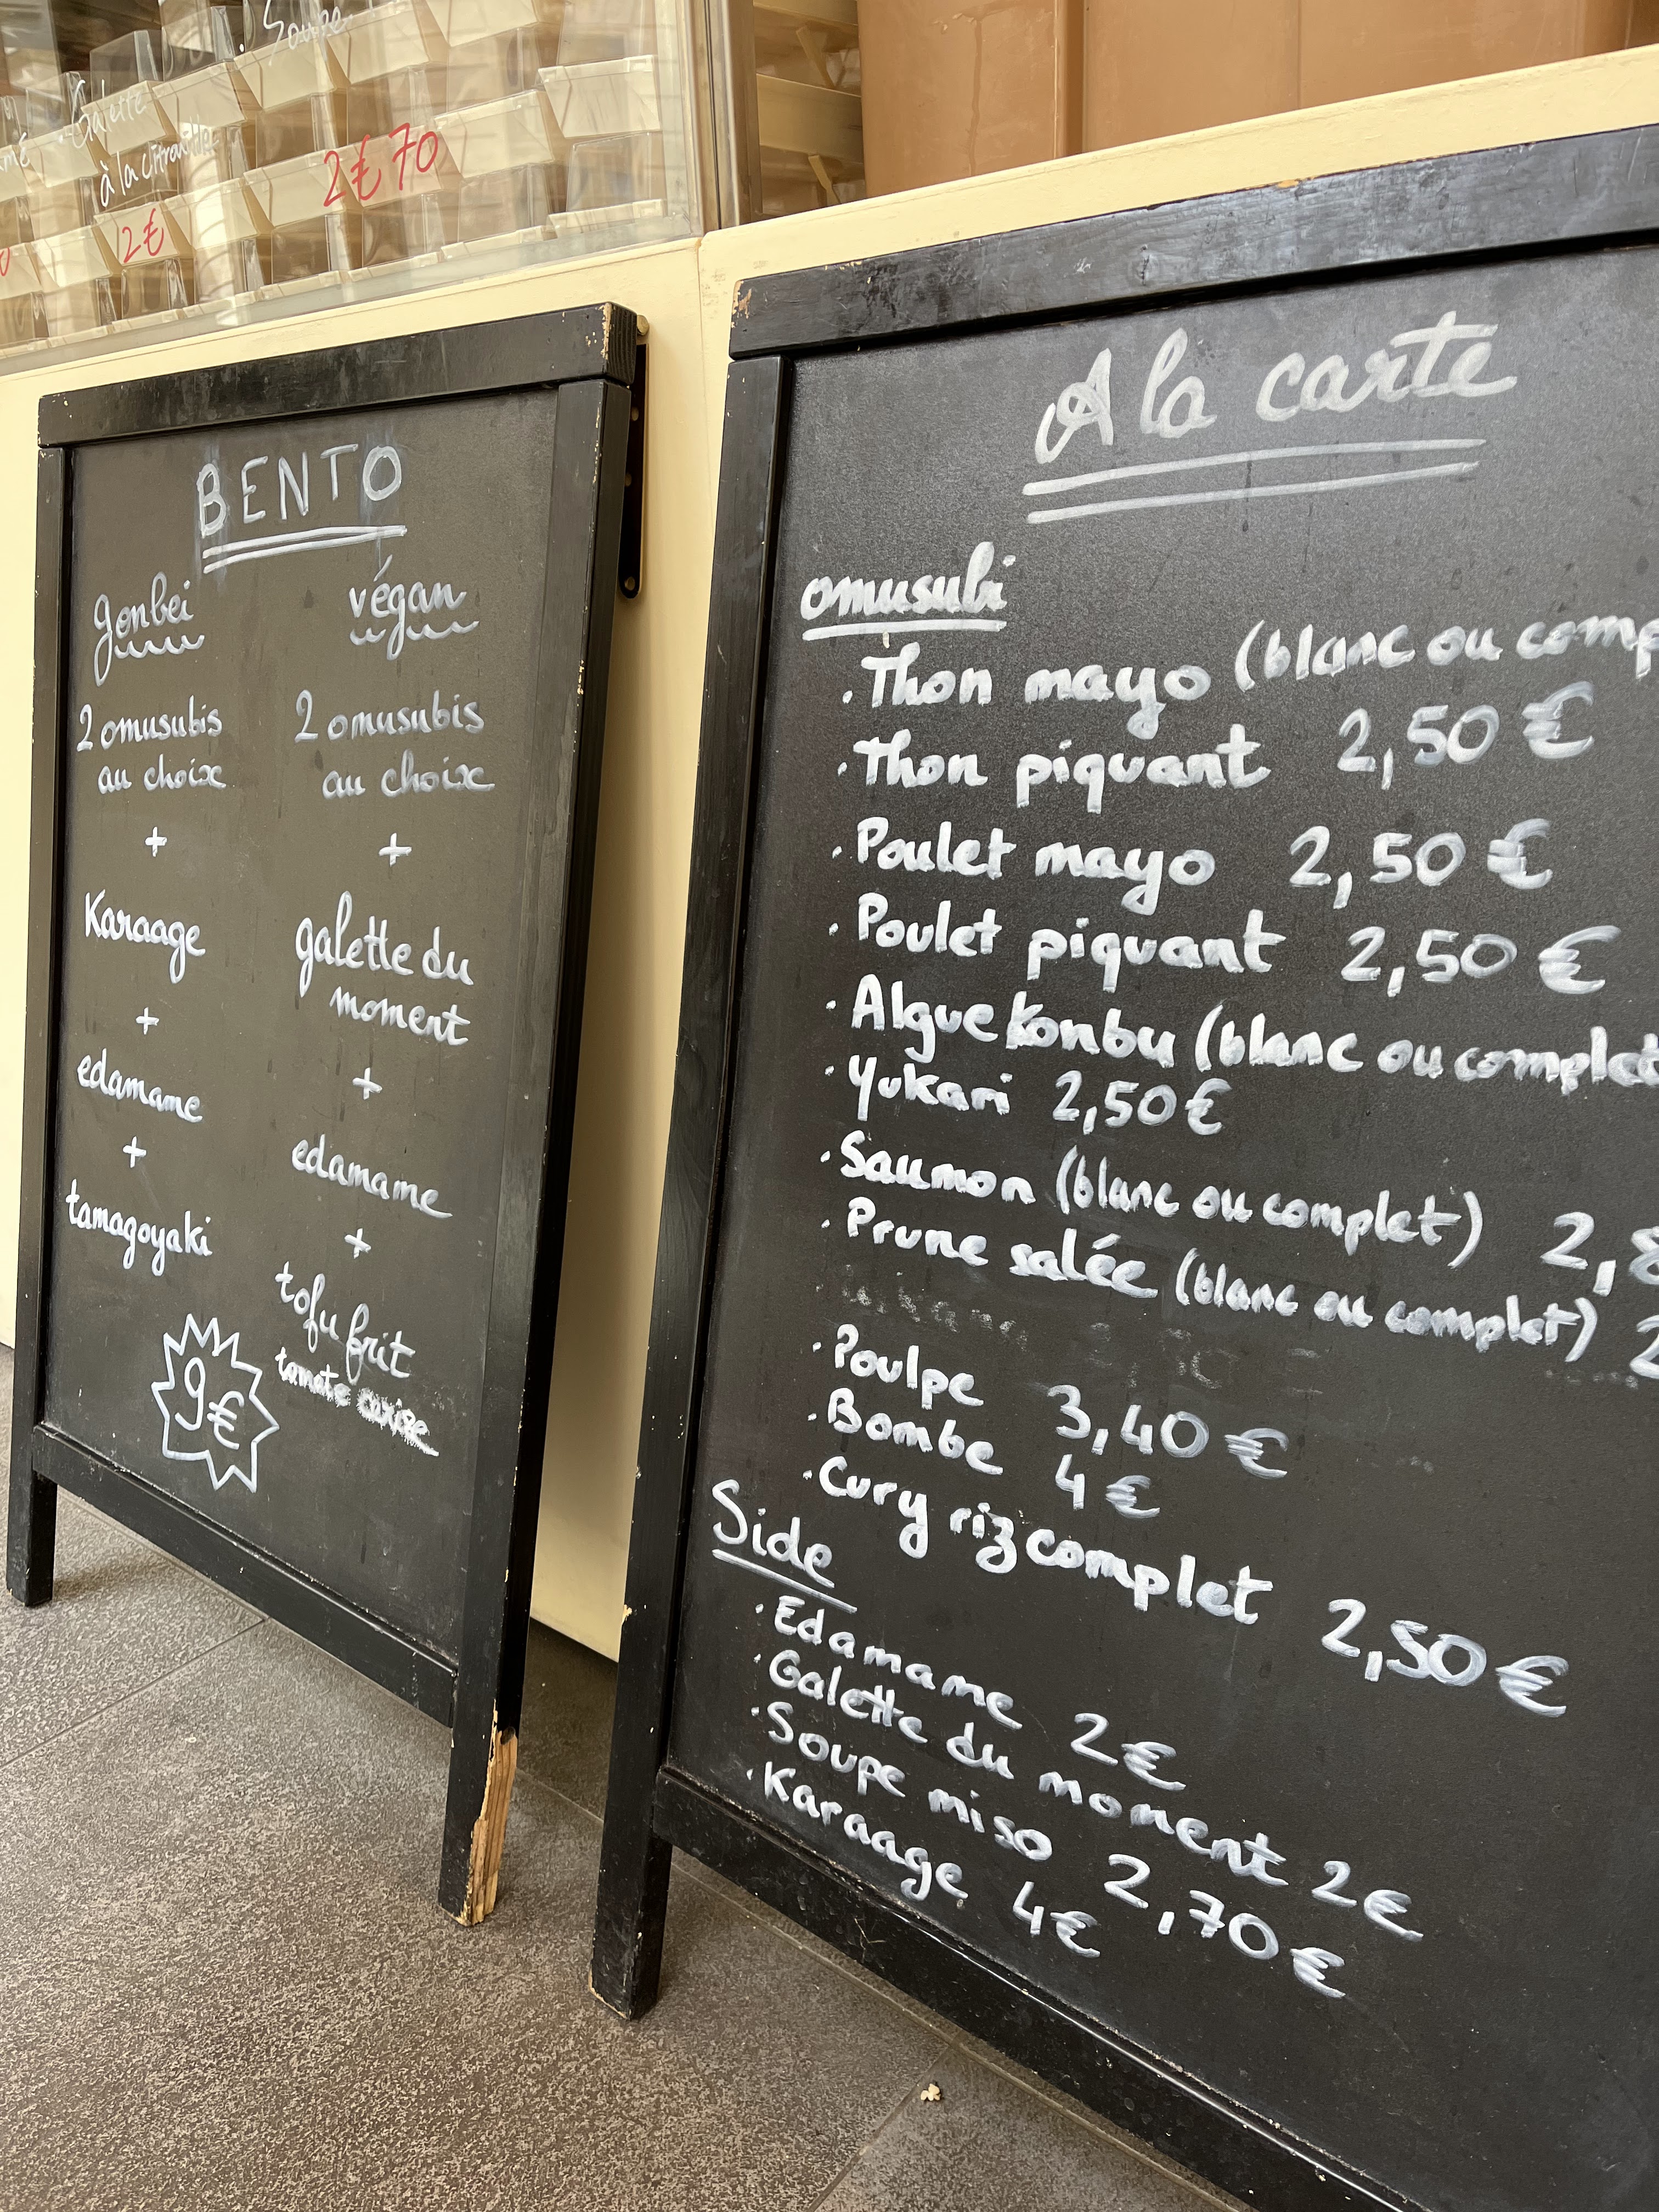 Soupe
Galette
à la citrouille
2€70
2€
BENTO
gonbei
2 omusubis
au choix
+
Karaage
+
edamame
+
tamagoyaki
9€
végan
2 omusubis
au choix
+
galette du
moment
+
edamame
+
tofu frit
tomate cerise
A la carte
omusubi
. Thon mayo (blanc ou comp
. Thon piquant 2,50 €
. Poulet mayo 2,50 €
. Poulet piquant 2,50 €
. Algue konbu (blanc ou complet
. Yukari 2,50 €
. Saumon (blanc ou complet) 2,8
. Prune salée (blanc ou complet) 2
. Poulpe 3,40 €
. Bombe 4 €
. Cury riz complet 2,50 €
Side
. Edamame 2 €
. Galette du moment 2 €
. Soupe miso 2,70 €
. Karaage 4 €